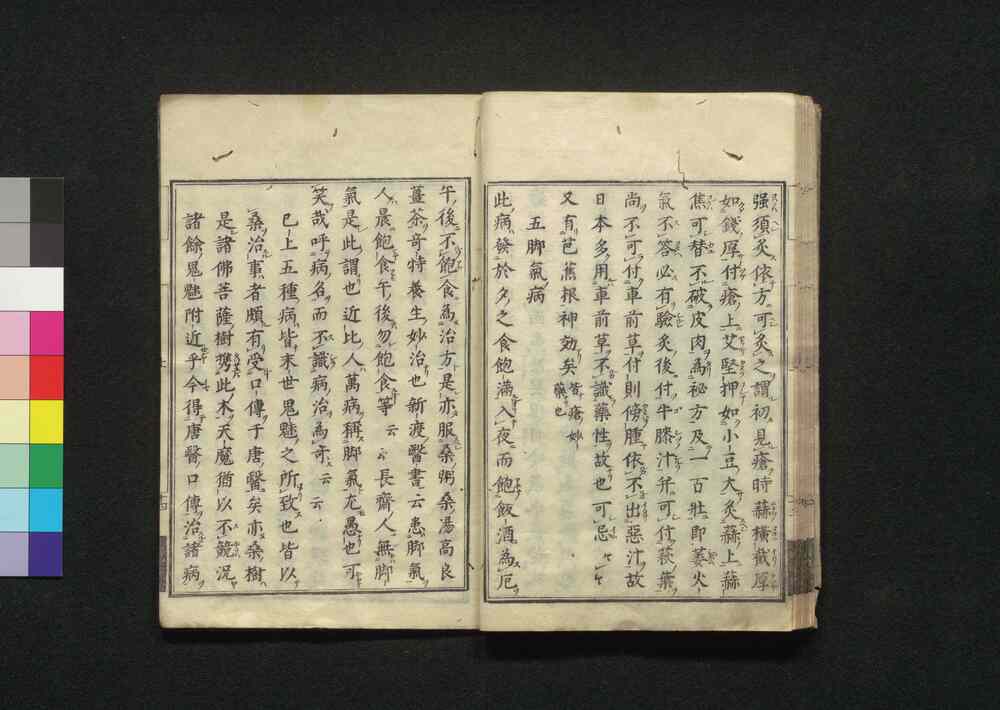 强須灸依方可灸之謂初見瘡時蒜橫截厚
如錢厚付瘡上艾堅押如小豆大灸蒜上蒜
焦可替不破皮肉爲祕方及一百壯即萎火
氣不答必有驗灸後付牛膝汁并可付萩葉
尚不可付車前草付則傍腫依不出惡汁故
日本多用車前草不識藥性故也可忌
又有芭蕉根神効矣皆瘡妙藥也
五脚氣病
此病發於夕之食飽滿入夜而飽飯酒為厄
午後不飽食為治方是亦服桑粥桑湯高良
薑茶奇特養生妙治也新渡醫書云患脚氣
人晨飽食午後勿飽食等云云長齋人無脚
氣是此謂也近比人萬病稱脚氣尤愚也可
笑哉呼病名而不識病治為奇云云
已上五種病皆末世鬼魅之所致也皆以
桑治事者頗有受口傳于唐醫矣亦桑樹
是諸佛菩薩樹携此木天魔猶以不競況
諸餘鬼魅附近乎今得唐醫口傳治諸病